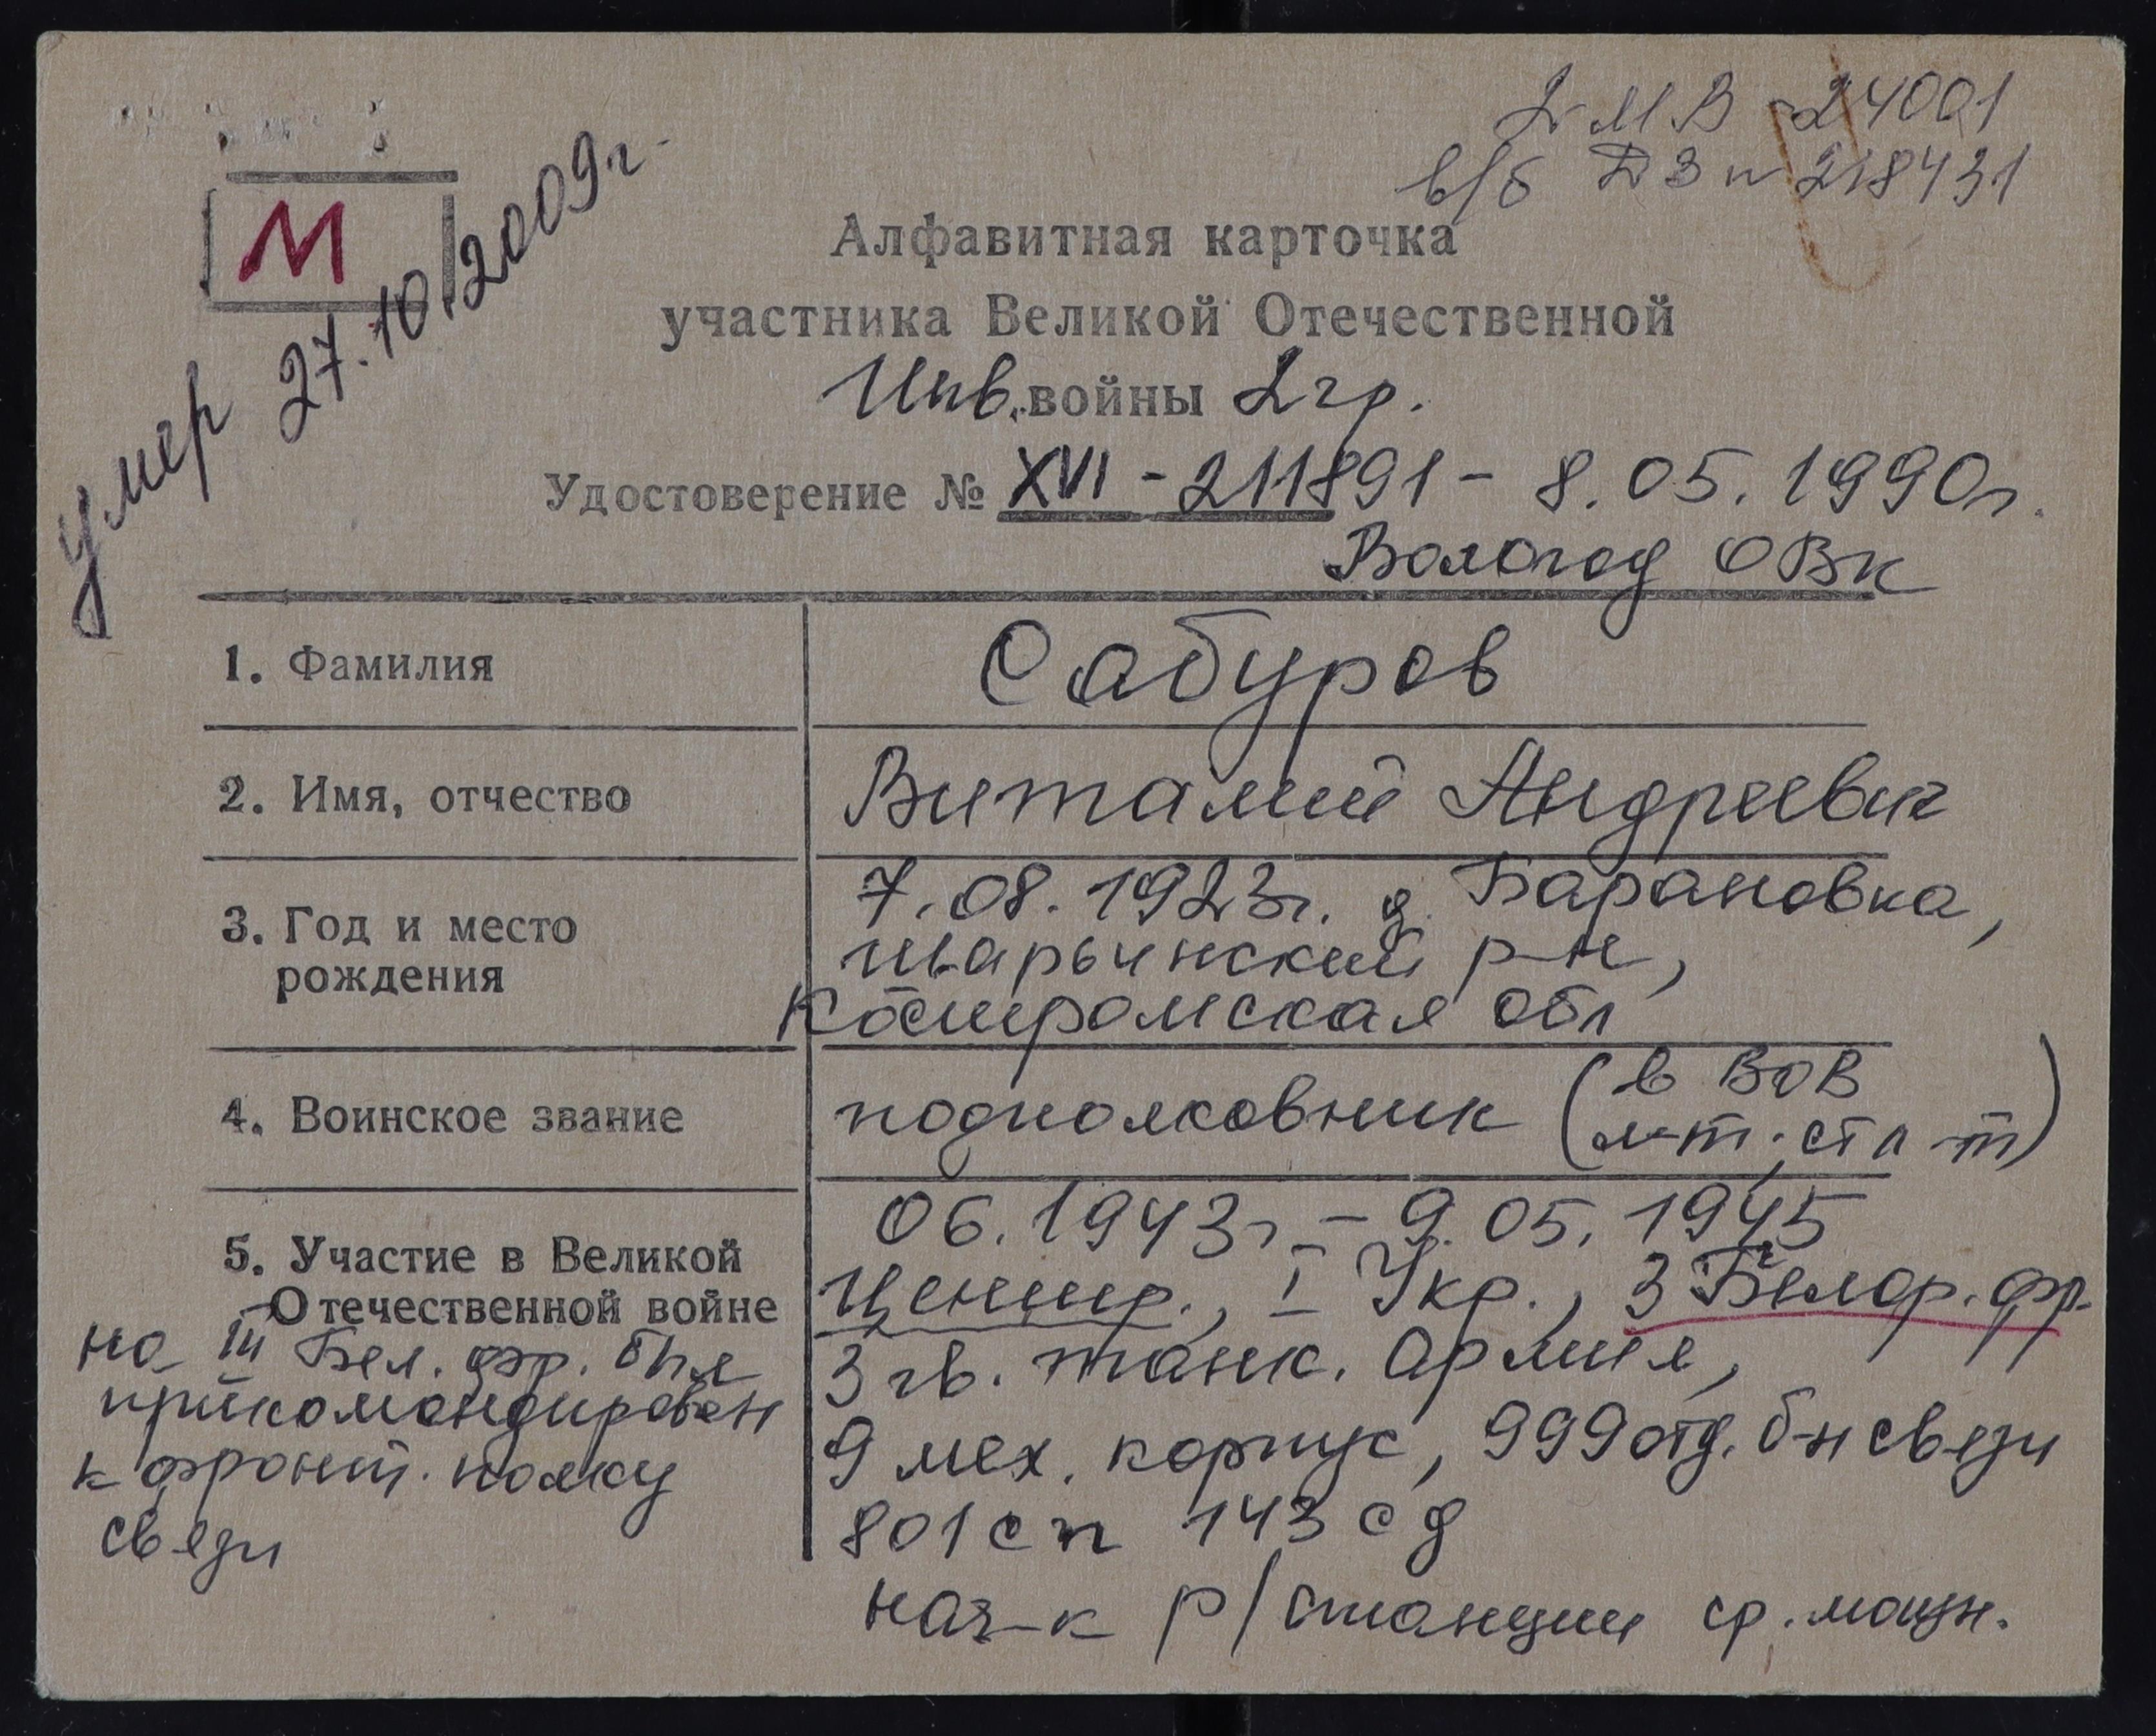 2 М В - 24001
в/б Д З № 218431
М
умер 27.10.2009г.
Алфавитная карточка
участника Великой Отечественной
Инв. войны 2 гр.
Удостоверение № XVI - 211891 - 8.05.1990г.
Вологод ОВК
1. Фамилия
Сабуров
2. Имя, отчество
Виталий Андреевич
3. Год и место
рождения
7.08.1923г. д. Барановка,
шарьинский р-н,
Костромская обл
4. Воинское звание
подполковник (в ВОВ
л-т, ст л-т)
5. Участие в Великой
Отечественной войне
06.1943г - 9.05.1945
Центр., I Укр., 3 Белор. фр.
3 гв. танк. Армия,
9 мех. корпус, 999 отд. б-н связи
801 сп 143 сд
нач-к р/станции ср. мощн.
на III Бел. фр. был
прикомандирован
к фронт. полку
связи